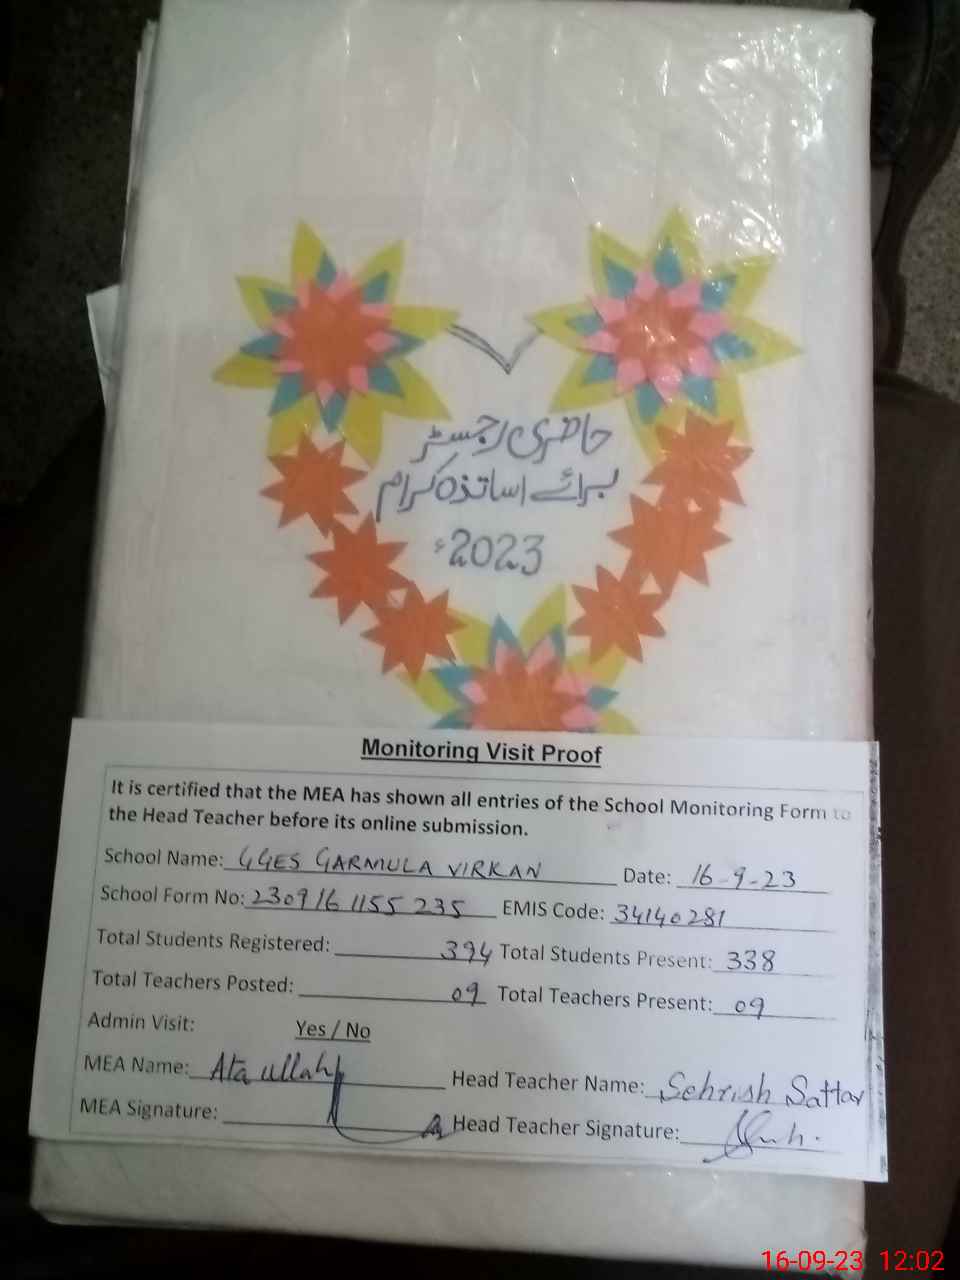 حاضری رجسٹر
برائے اساتذہ کرام
2023ء
Monitoring Visit Proof
It is certified that the MEA has shown all entries of the School Monitoring Form to
the Head Teacher before its online submission.
School Name: GGES GARMULA VIRKAN Date: 16-9-23
School Form No: 2309161155235 EMIS Code: 34140281
Total Students Registered: 394 Total Students Present: 338
Total Teachers Posted: 09 Total Teachers Present: 09
Admin Visit: Yes / No
MEA Name: Ata ullah Head Teacher Name: Sehrish Sattar
MEA Signature: Head Teacher Signature:
16-09-23 12:02